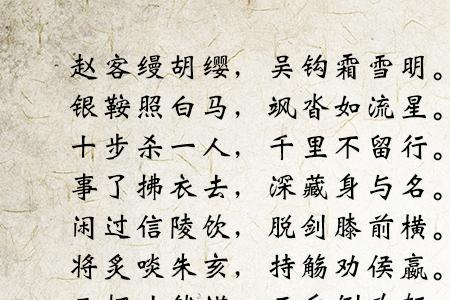 赵客缦胡缨，吴钩霜雪明。
银鞍照白马，飒沓如流星。
十步杀一人，千里不留行。
事了拂衣去，深藏身与名。
闲过信陵饮，脱剑膝前横。
将炙啖朱亥，持觞劝侯嬴。